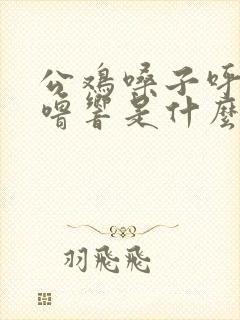 公鸡嗓子呼
噜響是什麼
羽飛飛